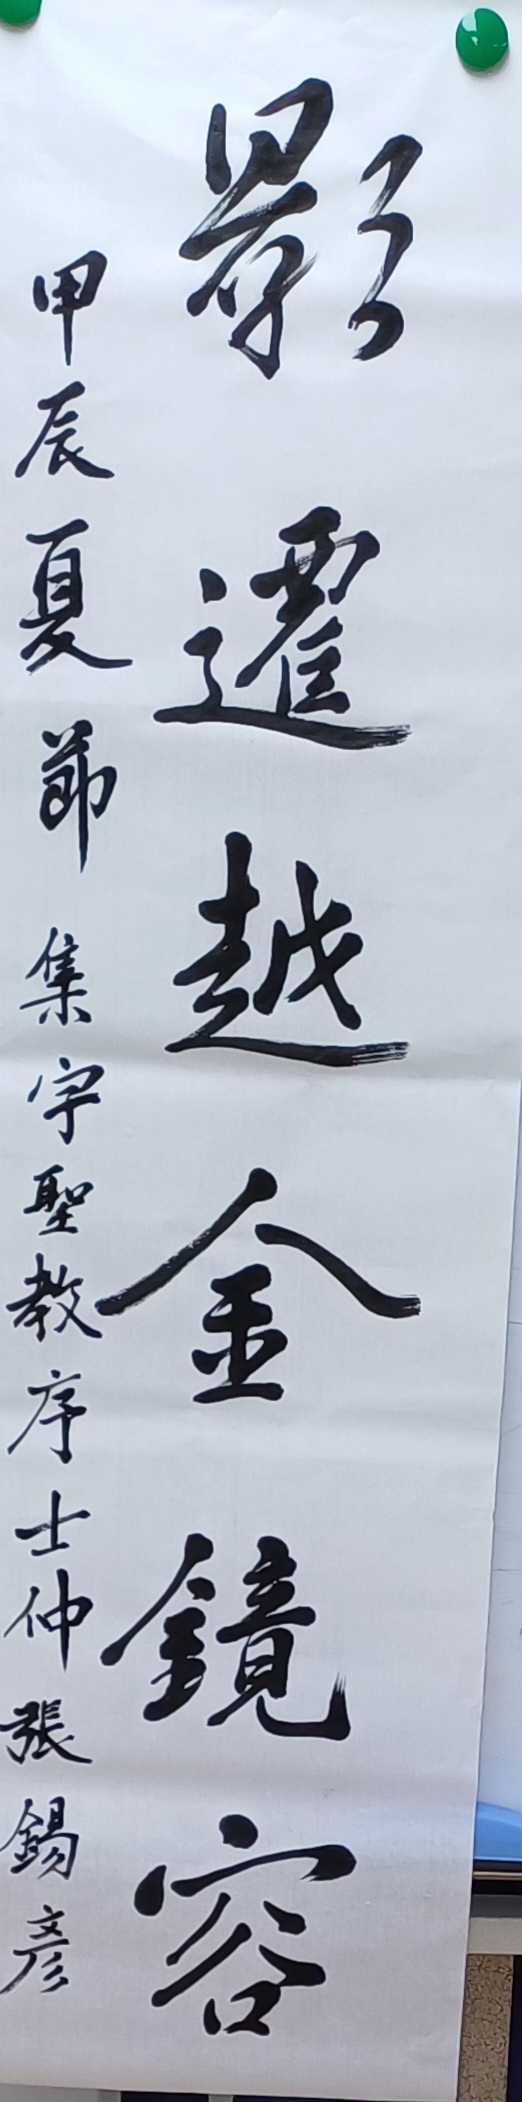 影遷越金鏡容
甲辰夏節 集字聖教序士仲張錫彥